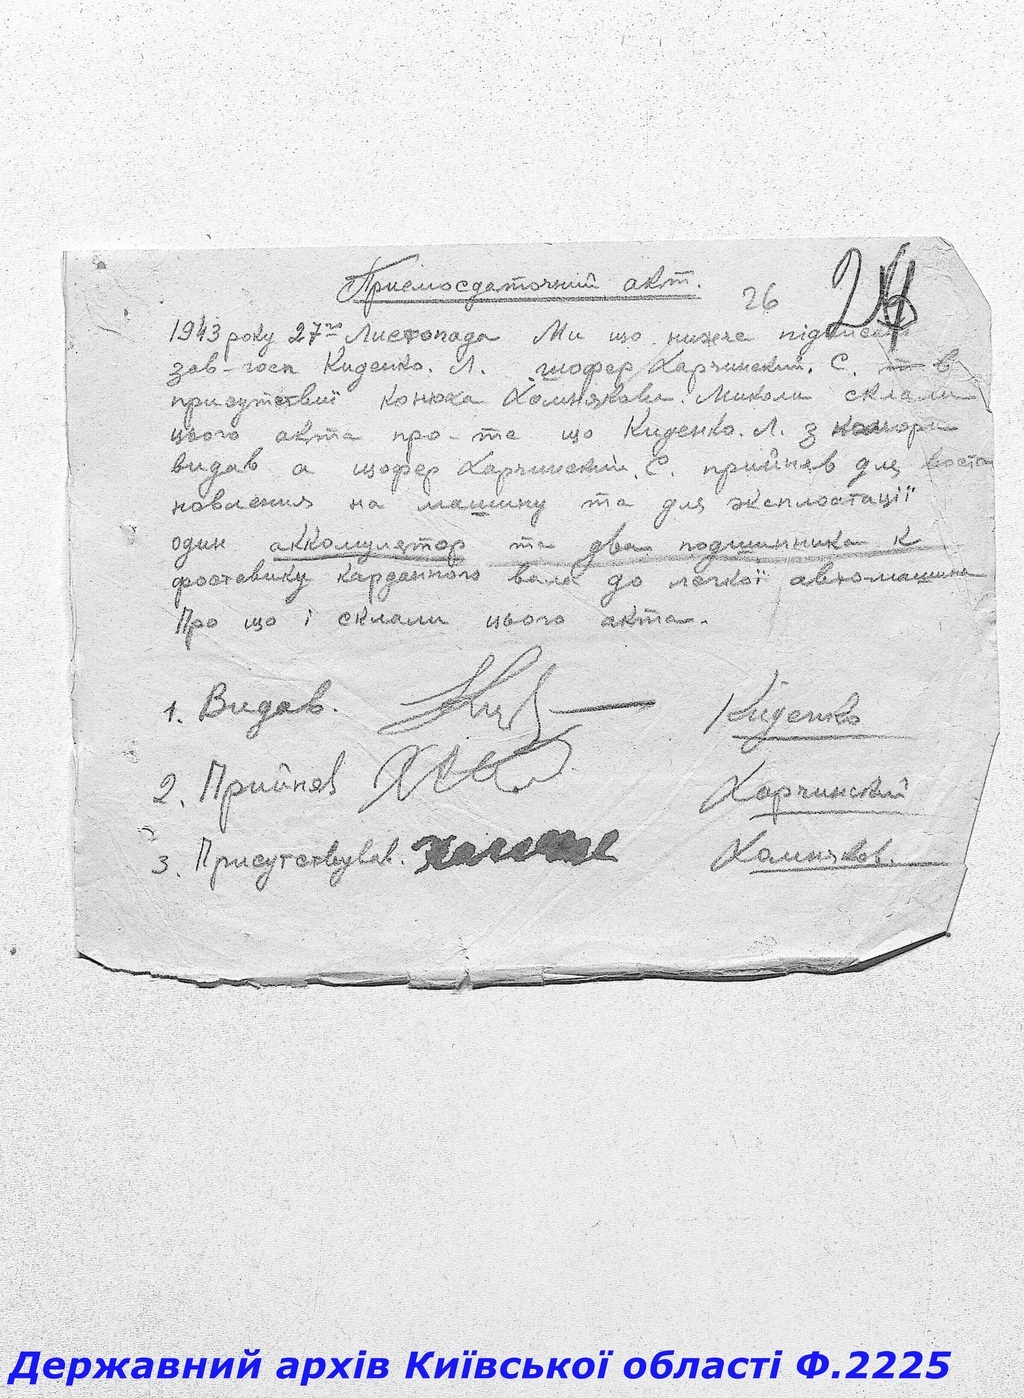 Приемосдаточний акт.
26
1943 року 27го Листопада Ми що нижче підписали
зав-госп Киденко. Л. шофер Харчинский. С. в
присутствії конюха Хомнякова. Миколи склали
цього акта про-те що Киденко. Л. з комори
видав а шофер Харчинский. С. прийняв для воста
новлення на машину та для эксплоатації
один аккомулятор та два подшипника к
фостовику карданного вала до легкої автомашини
Про що і склали цього акта.
1. Видав. Киденко
2. Прийняв Харчинский
3. Присутствував. Хомняков.
Державний архів Київської області Ф.2225